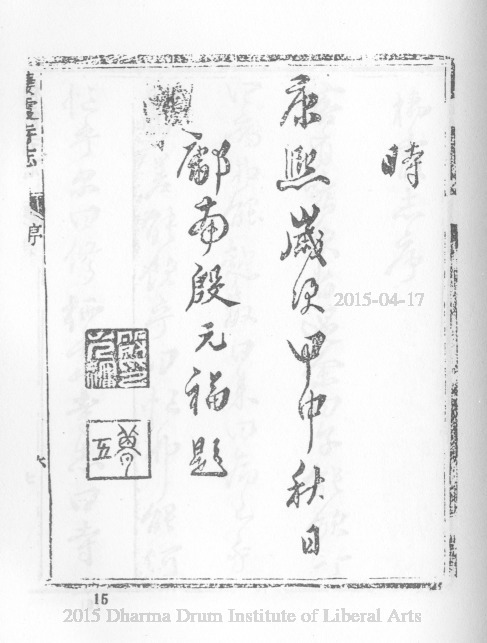 時
康熙歲次甲申秋日
鄘南殷元福題
尊五
棲霞寺志
序
15
2015-04-17
2015 Dharma Drum Institute of Liberal Arts